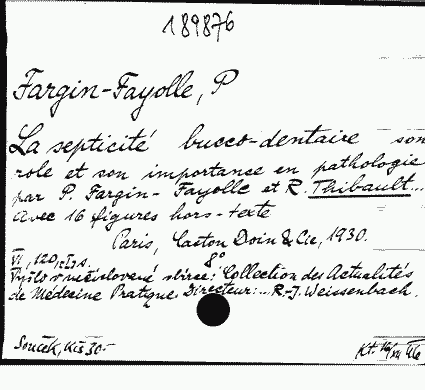 189876
Fargin-Fayolle, P
La septicité bucco-dentaire son
role et son importance en pathologie
par P. Fargin-Fayolle et R. Thibault...
avec 16 figures hors-texte
Paris, Gaston Doin & Cie, 1930.
VI, 120, s. 8°
Vyšlo v nečíslované sbírce: Collection des Actualités
de Médecine Pratique. Directeur:... R.-J. Weissenbach.
Souček, Kčs 30-
Kt.